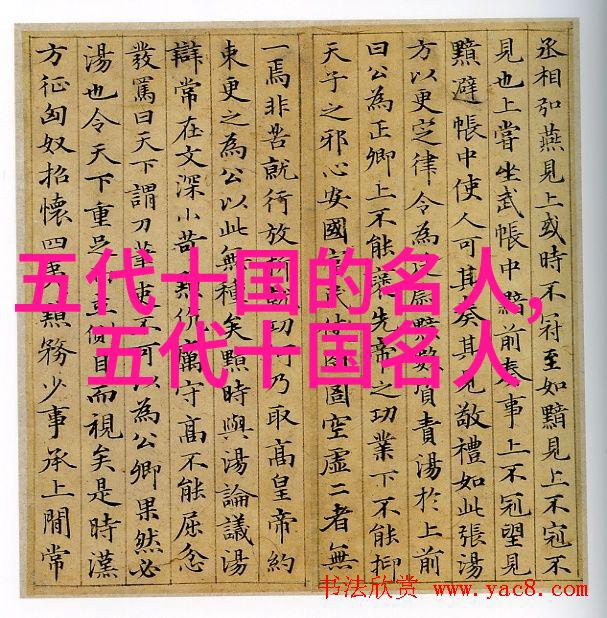 丞相弘燕見上或時不冠至如黯見上不冠不
見也上嘗坐武帳中黯前奏事上不冠望見
黯避帳中使人可其奏其見敬禮如此張湯
方以更定律令為廷尉黯數質責湯於上前
曰公為正卿上不能襃先帝之功業下不能抑
天子之邪心安國圄空虛二者無
一焉非苦就行放功何乃取高皇帝約
束更之為公以此無種矣黯時與湯論議湯
辯常在文深小苛黯伉厲守高不能屈忿
發罵曰天下謂刀筆吏不可以為公卿果然必
湯也令天下重足立側目而視矣是時漢
方征匈奴招懷四夷黯務少事承上間常
五代十国的名人,
五代十国名人
书法欣赏 www.yac8.com